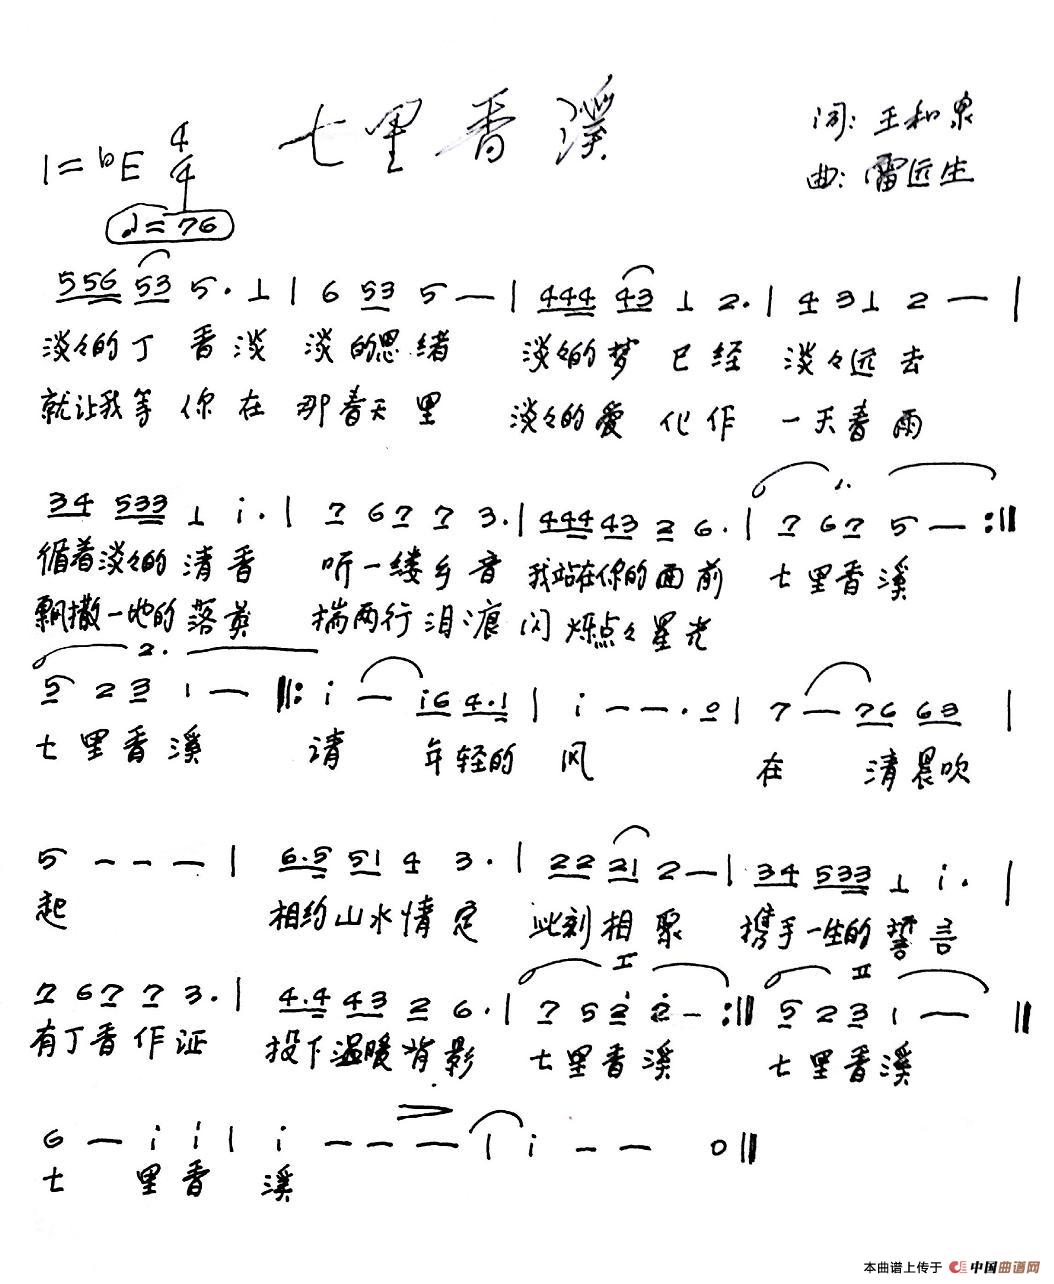 七里香溪
词: 王和泉
曲: 雷远生
1=bE 4/4
♩=76
556 53 5. 1 | 6 53 5 — | 444 43 1 2. | 4 31 2 — |
淡々的丁香淡 淡的思绪 淡々的梦已经 淡々远去
就让我等你在 那春天里 淡々的爱化作 一天春雨
34 533 1 i. | 7 67 7 3. | 444 43 2 6. | 1. 7 67 5 — :||
循着淡々的清香 听一缕乡音 我站在你的面前 七里香溪
飘撒一地的落英 揣两行泪痕 闪烁点々星光
2. 5 2 3 1 — ||: i — i6 4.1 | i — — . 0 | 7 — 76 63 |
七里香溪 请 年轻的 风 在 清晨吹
5 — — — | 6.5 51 4 3. | 22 21 2 — | 34 533 1 i. |
起 相约山水情定 此刻相聚 携手一生的誓言
7 67 7 3. | 4.4 43 2 6. | I 7 5 2 2 — :|| II 5 2 3 1 — ||
有丁香作证 投下温暖背影 七里香溪 七里香溪
6 — i i | i — — — | i — — 0 ||
七 里香 溪
本曲谱上传于 中国曲谱网